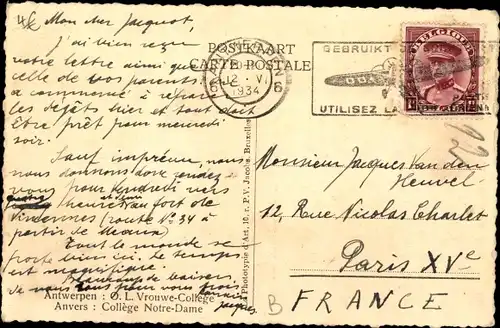 Mon cher Jacquot,
J'ai bien reçu
votre lettre ainsi que
celle de vos parents.
a commencé à
les dégâts hier et tout doit
être prêt pour mercredi
soir.
Sauf imprévu, nous
nous donnons donc rendez-
vous pour vendredi vers
heure au fort de
Vincennes (route No 34 à
partir de Meaux)
Tout le monde se
porte bien ici. Le temps
est magnifique.
baisers,
de nous tous pour vous trois
Jacques
Antwerpen : O. L. Vrouwe-College
Anvers : Collège Notre-Dame
POSTKAART
CARTE POSTALE
12 VI
1934
Phototypie d'Art, 10, r. P.V. Jacobs, Bruxelles
GEBRUIKT
UTILISEZ LA
BELGIQUE
Monsieur Jacques Van den
Heuvel
12, Rue Nicolas Charlet
Paris XVe
B FRANCE